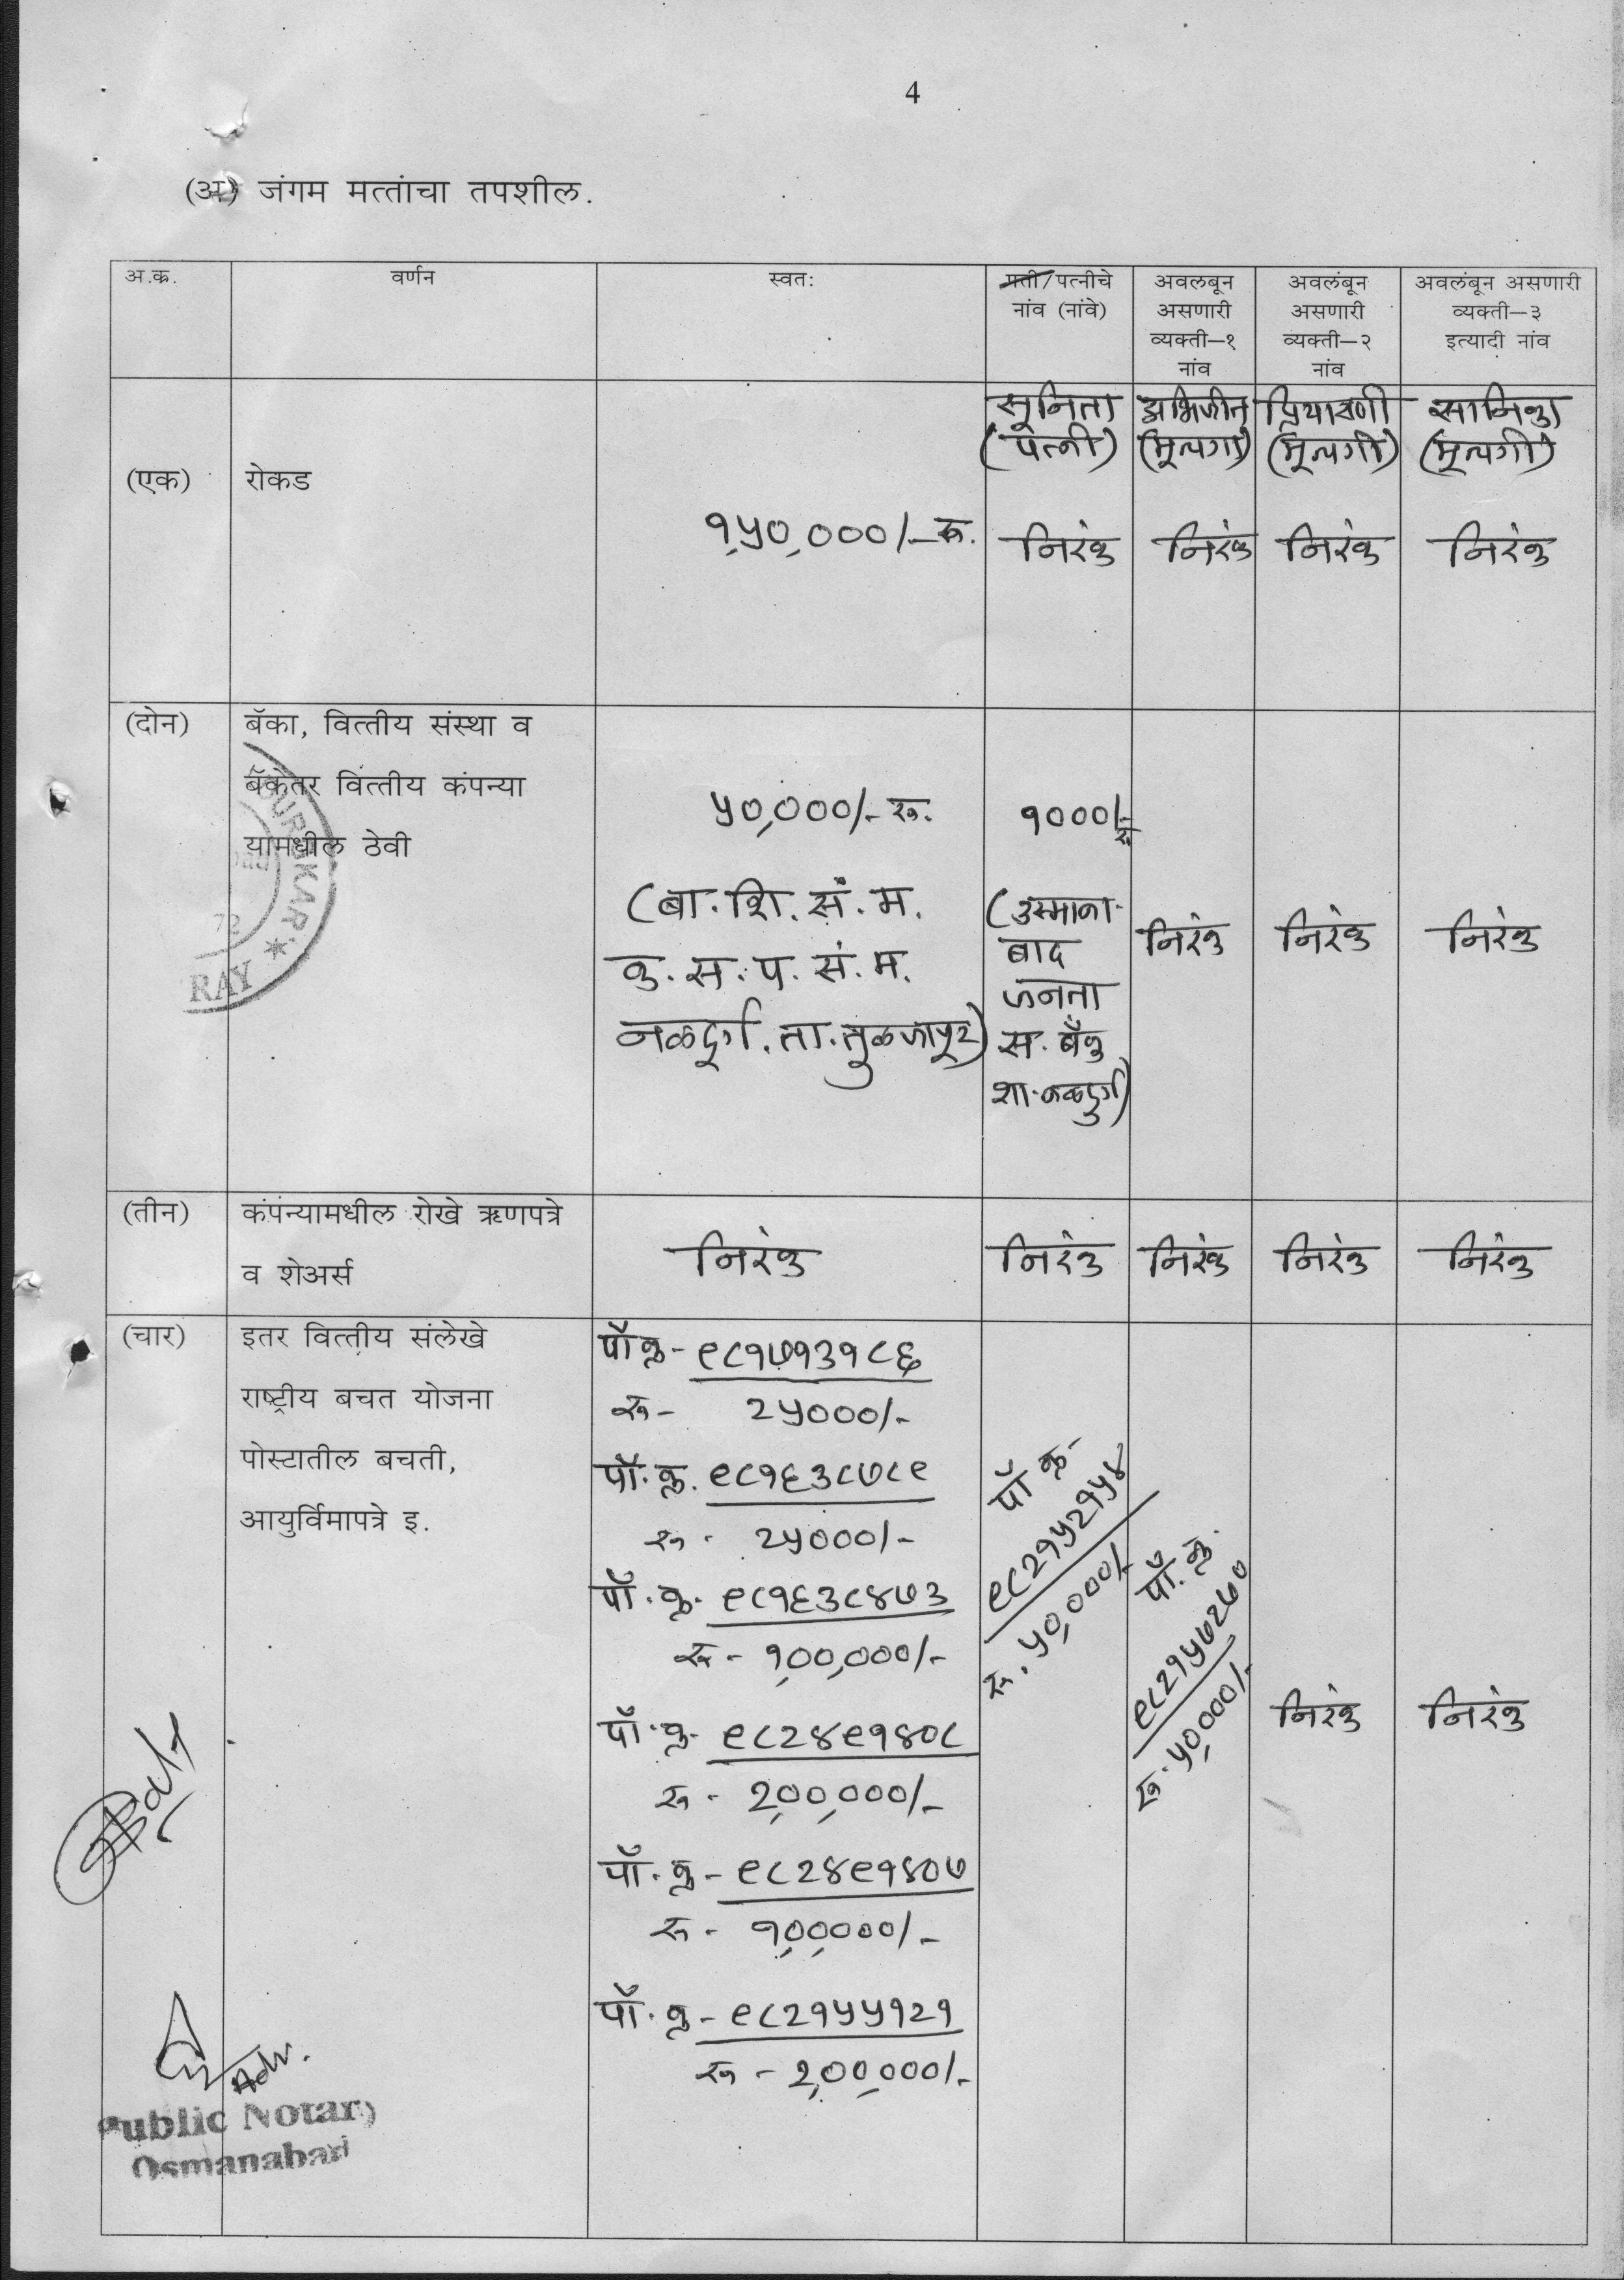 4
(अ) जंगम मत्तांचा तपशील.
अ.क्र. वर्णन स्वतः पती/पत्नीचे नांव (नांवे) अवलबून असणारी व्यक्ती–१ नांव अवलंबून असणारी व्यक्ती–२ नांव अवलंबून असणारी व्यक्ती–३ इत्यादी नांव
सूनिता अभिजीत सानिका
(पत्नी) (मूलगा) (मूलगी) (मूलगी)
(एक) रोकड
१,५०,०००/- रू. निरंक निरंक निरंक निरंक
(दोन) बॅका, वित्तीय संस्था व
बॅकेतर वित्तीय कंपन्या
यामधील ठेवी
५०,०००/- रू.
(बा. शि. सं. म.
क. स. प. सं. म.
नळदूर्ग. ता. तुळजापूर)
१०००/- रू
(उस्माना-
बाद
जनता
स. बँक
शा. नळदुर्ग)
निरंक निरंक निरंक
(तीन) कंपंन्यामधील रोखे ऋणपत्रे
व शेअर्स
निरंक निरंक निरंक निरंक निरंक
(चार) इतर वित्तीय संलेखे
राष्ट्रीय बचत योजना
पोस्टातील बचती,
आयुर्विमापत्रे इ.
पॉ क्र - ९८१७१३१८६
रू - २५०००/-
पॉ. क्र. ९८१६३८७८९
रू - २५०००/-
पॉ. क्र. ९८१६३८४७३
रू - १,००,०००/-
पॉ. क्र - ९८२४९१४०८
रू - २,००,०००/-
पॉ. क्र - ९८२४९१४०७
रू - १,००,०००/-
पॉ. क्र - ९८२१५५१२१
रू - २,००,०००/-
पॉ क्र -
९८२१५२१५४
रू. ५०,०००/-
पॉ. क्र.
९८२१५७२७०
रू. ५०,०००/-
निरंक निरंक
RAY
Adv.
Public Notary
Osmanabad